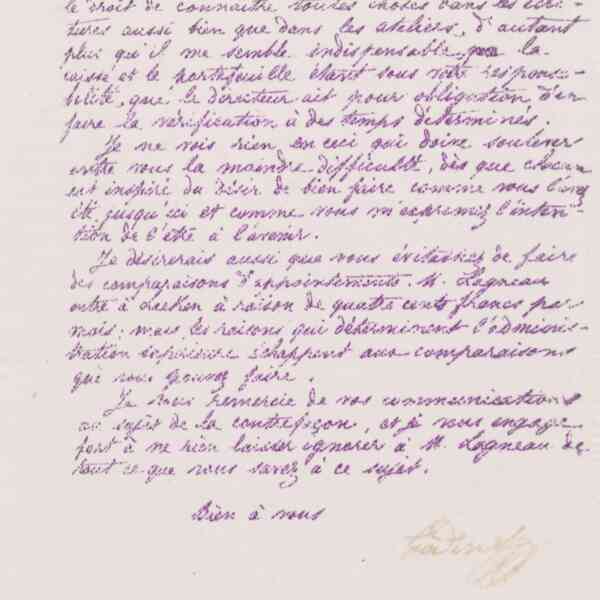 le droit de connaître toutes choses dans les écri-
tures aussi bien que dans les ateliers, d'autant
plus qu'il me semble indispensable, que la
caisse et le portefeuille étant sous votre responsa-
bilité, que le directeur ait pour obligation d'en
faire la vérification à des temps déterminés.
Je ne vois rien en ceci qui doive soulever
entre vous la moindre difficulté, dès que chacun
est inspiré du désir de bien faire comme vous l'avez
été jusqu'ici et comme vous m'exprimez l'inten-
tion de l'être à l'avenir.
Je désirerais aussi que vous évitassiez de faire
des comparaisons d'appointements. M. Logneau
entre à Laeken à raison de quatre cents francs par
mois; mais les raisons qui déterminent l'adminis-
tration supérieure échappent aux comparaisons
que vous pouvez faire.
Je vous remercie de vos communications
au sujet de la contrefaçon, et je vous engage
fort à ne rien laisser ignorer à M. Logneau de
tout ce que vous savez à ce sujet.
Bien à vous